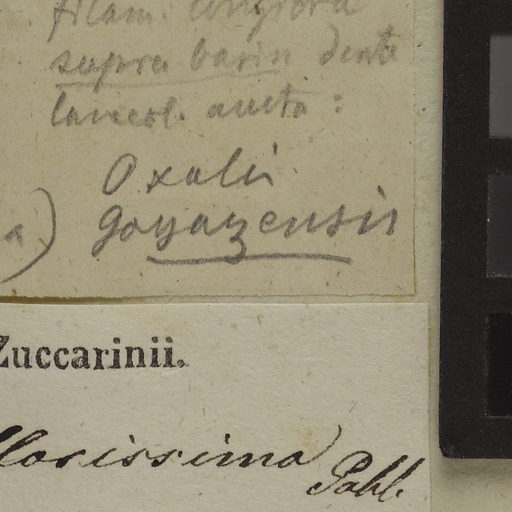 filam. longiora
supra basin dente
lanceol. aucta :
Oxalis
goyazensis
a)
Zuccarinii.
florissima Pohl.